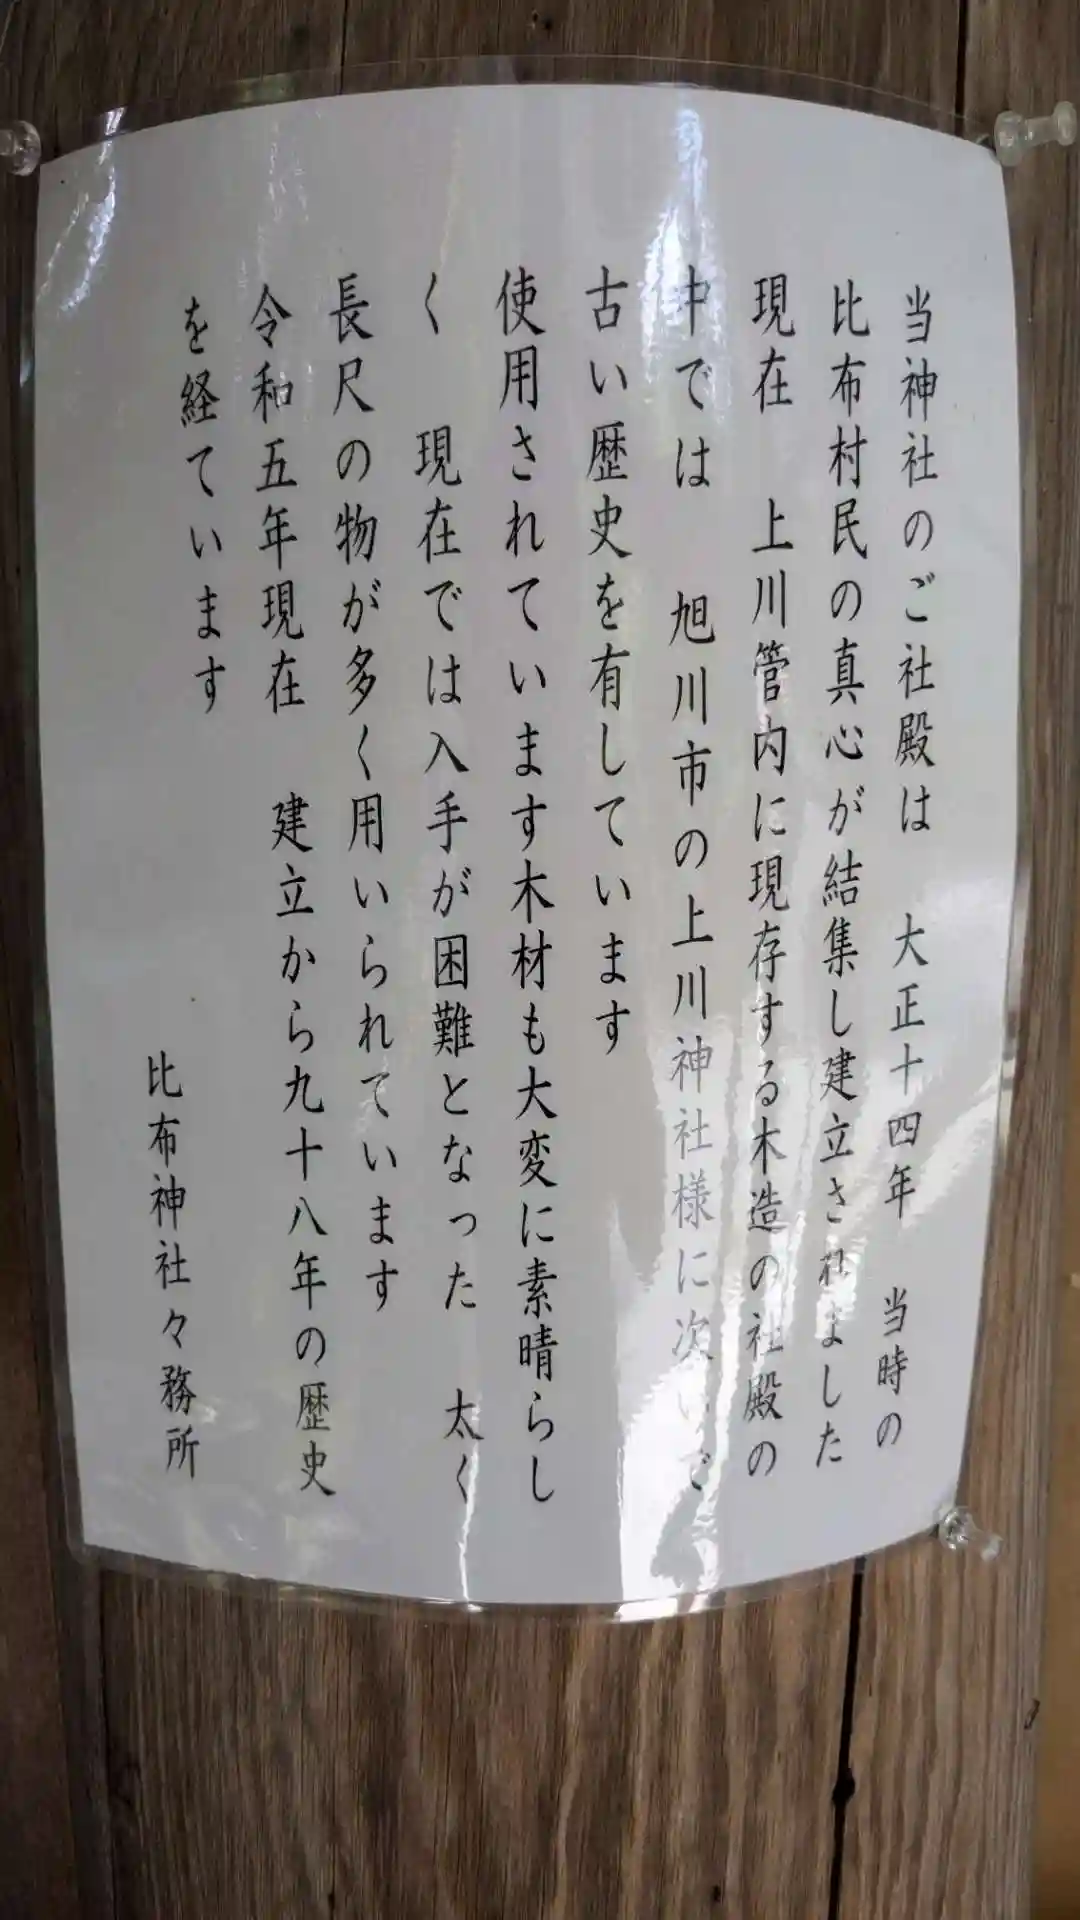 当神社のご社殿は　大正十四年　当時の
比布村民の真心が結集し建立されました
現在　上川管内に現存する木造の社殿の
中では　旭川市の上川神社様に次いで
古い歴史を有しています
使用されています木材も大変に素晴らし
く　現在では入手が困難となった　太く
長尺の物が多く用いられています
令和五年現在　建立から九十八年の歴史
を経ています
比布神社々務所